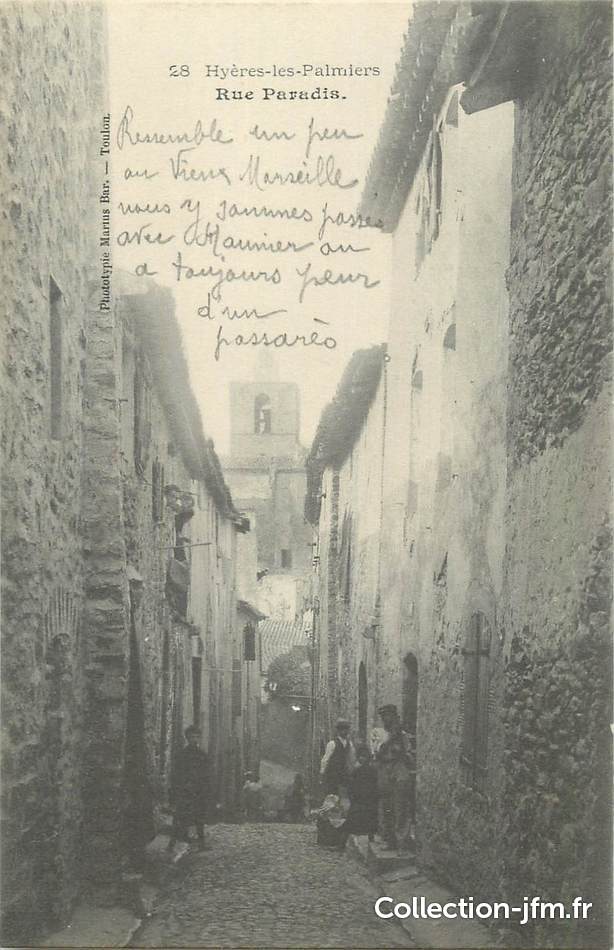 28 Hyères-les-Palmiers
Rue Paradis.
Ressemble un peu
au Vieux Marseille
nous y sommes passés
avec Maunier on
a toujours peur
d'un
passarès
Phototypie Marius Bar. — Toulon.
Collection-jfm.fr